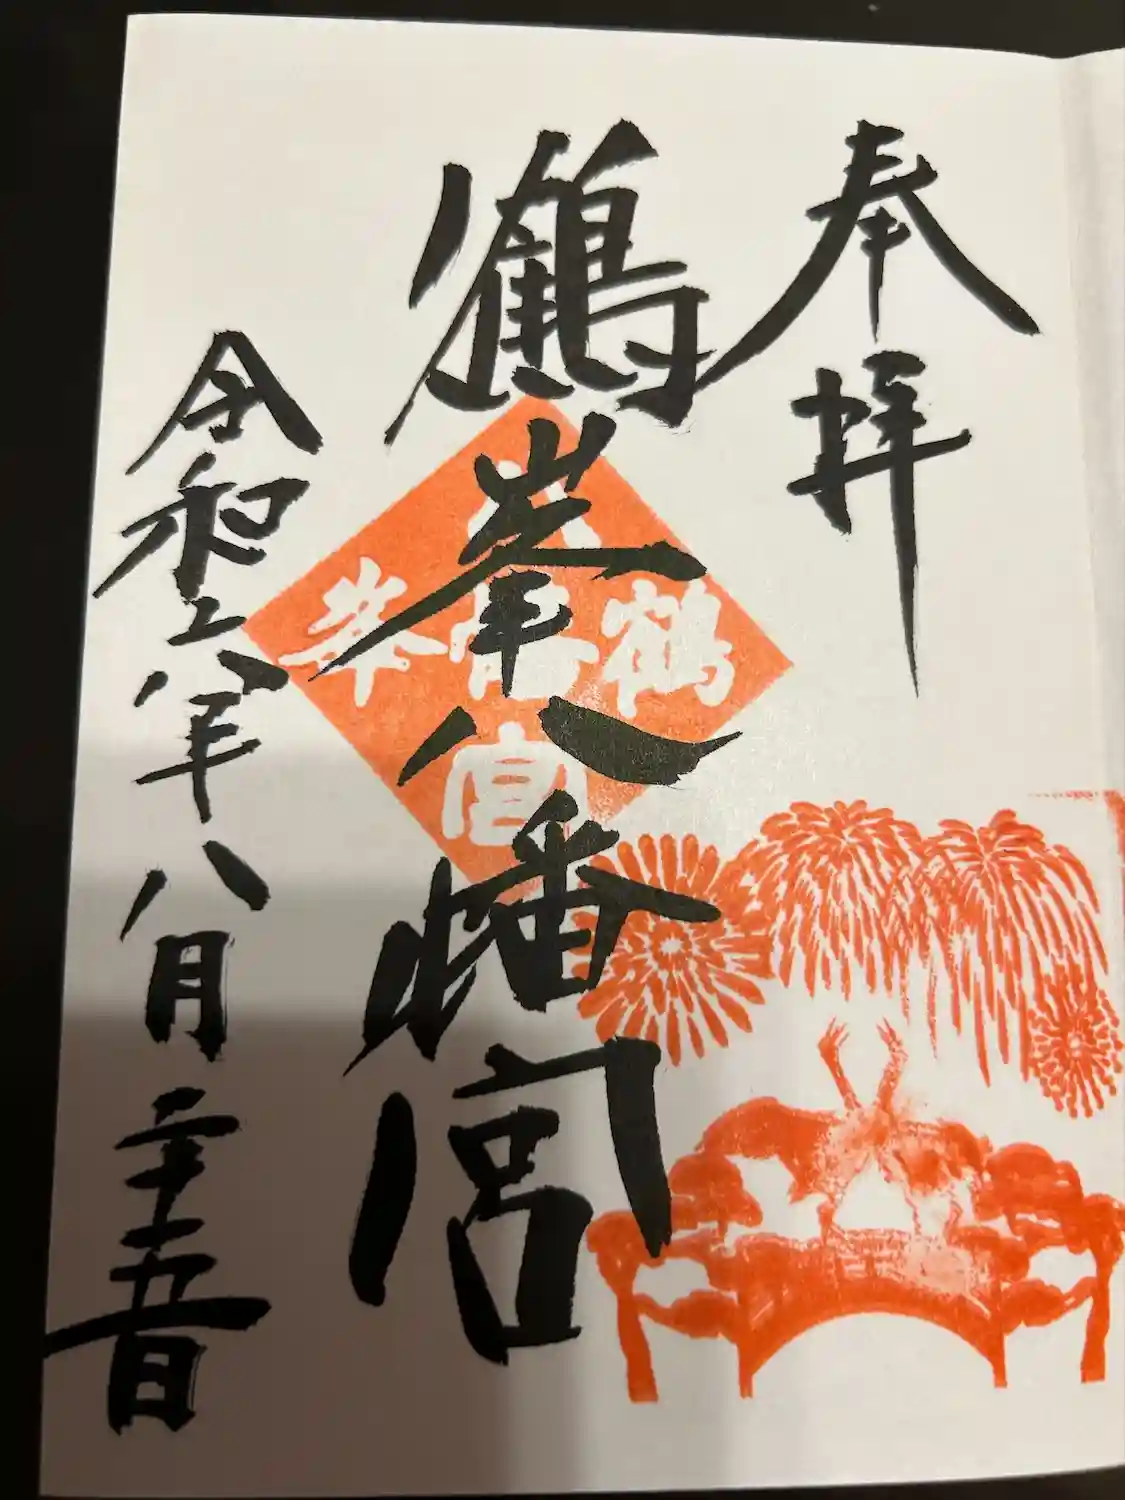 奉拝
鶴峯八幡宮
令和六年八月二十五日
鶴峯八幡宮